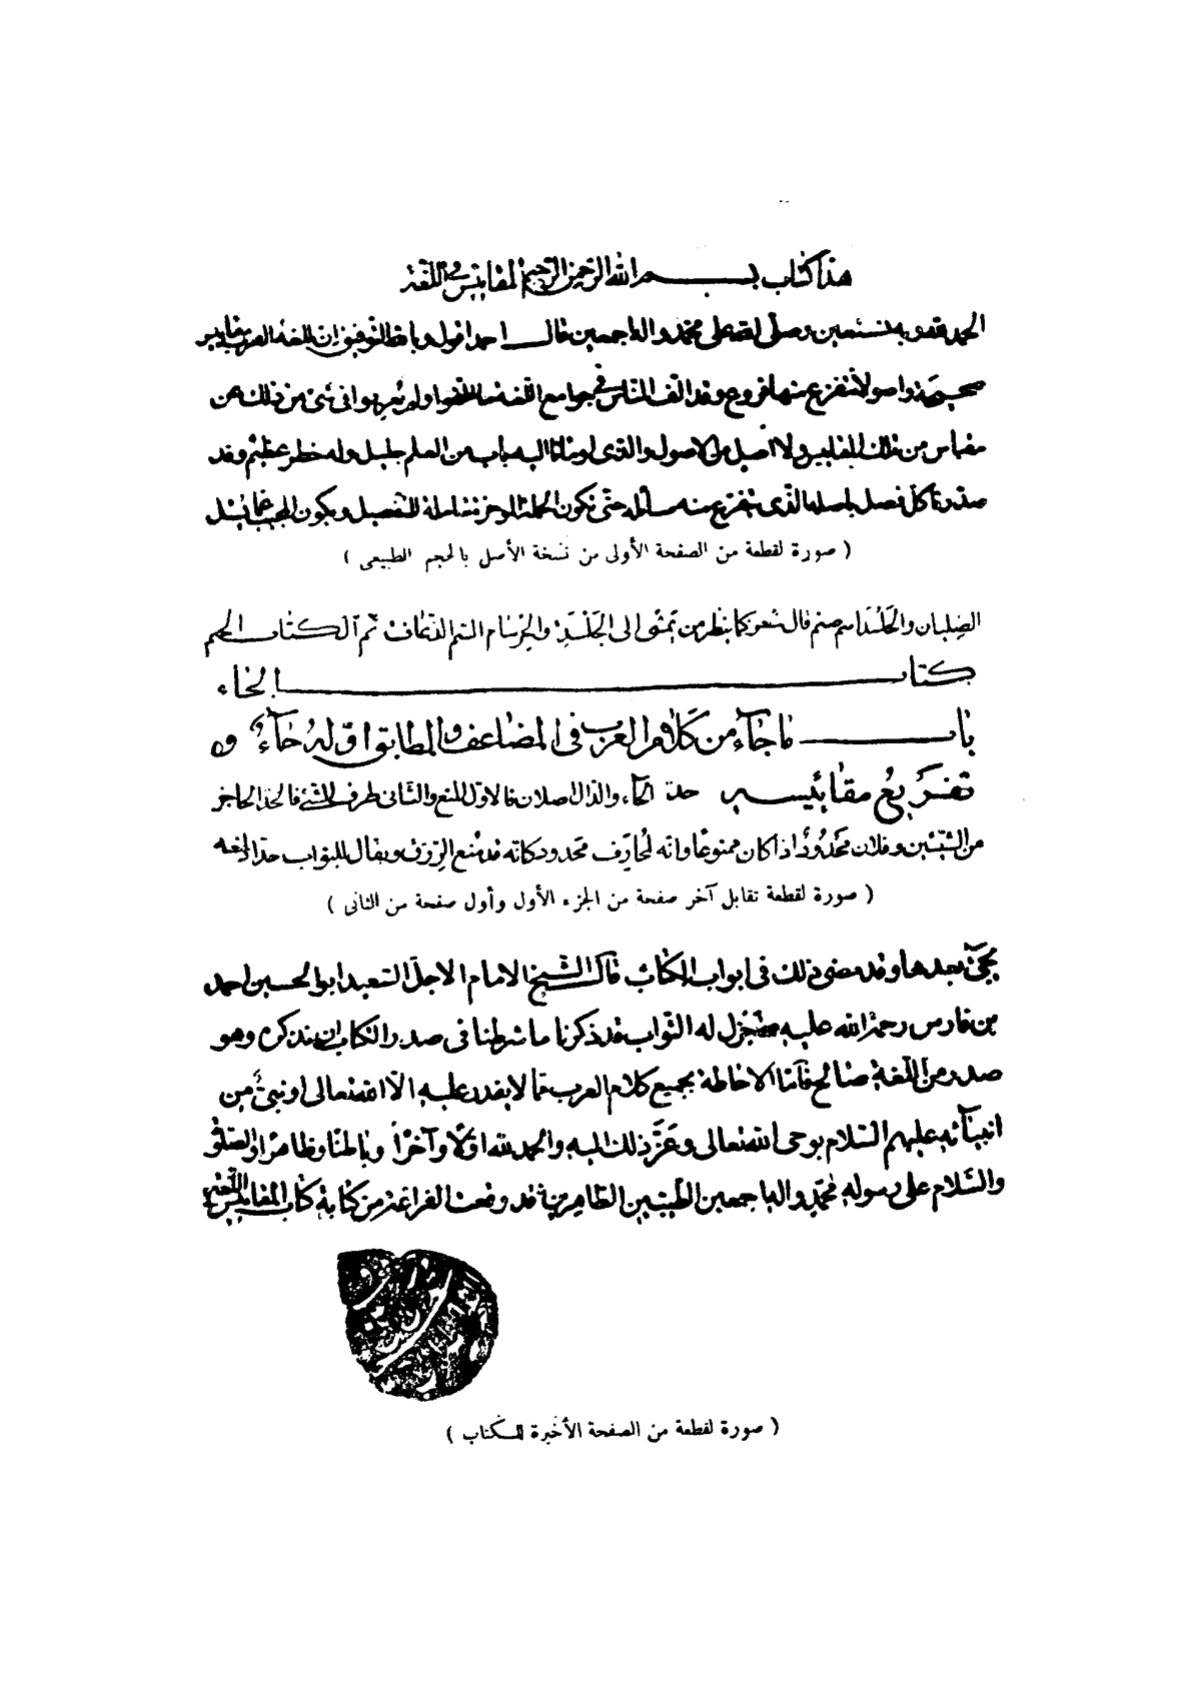 هذا كتاب بسم الله الرحمن الرحيم المقاييس في اللغة
الحمد لله وبه نستعين وصلى الله على محمد واله اجمعين قال احمد اقول وبالله التوفيق ان للغة العرب مقاييس
صحيحة واصولا تتفرع منها فروع وقد الف الناس في جوامع اللغة ما الفوا ولم يعربوا في شئ من ذلك عن
مقياس من تلك المقاييس ولا اصل من الاصول والذى اومانا اليه باب من العلم جليل وله خطر عظيم وقد
صدرنا كل فصل باصله الذى يتفرع منه مسائله حتى تكون الجملة الموجزة شاملة للتفصيل ويكون المجيب عما يسئل
( صورة لقطعة من الصفحة الأولى من نسخة الأصل بالحجم الطبيعى )
الصليان والجلسد اسم صنم قال شعر كما بيقر من يمشى الى الجلسد والجرسام السم الذعاف تم الكتاب الجيم
كتاب الحاء
باب ما جاء من كلام العرب في المضاعف والمطابق اوله حاء و
تفريع مقاييسه حد الحاء والدال اصلان فالاول المنع والثانى طرف الشئ فالحد الحاجز
من الشيئين وفلان محدود اذا كان ممنوعا وانه لمحارف محدود كانه قد منع الرزق ويقال للبواب حداد لمنعه
( صورة لقطعة تقابل آخر صفحة من الجزء الأول وأول صفحة من الثانى )
يجئ بعدها وقد مضى ذلك فى ابواب الكتاب قال الشيخ الامام الاجل السعيد ابو الحسين احمد
بن فارس رحمة الله عليه له الثواب قد ذكرنا ما شرطنا فى صدر الكتاب ان نذكره وهو
صدر من اللغة صالح فاما الاحاطة بجميع كلام العرب مما لا يقدر عليه الا الله تعالى او نبى من
انبيآئه عليهم السلام بوحى الله تعالى وعز ذلك اليه والحمد لله اولا وآخرا وباطنا وظاهرا والصلوة
والسلام على رسوله محمد واله اجمعين الطيبين الطاهرين قد وقعت الفراغة من كتابة كتاب المقاييس اللغة
( صورة لقطعة من الصفحة الأخيرة للكتاب )